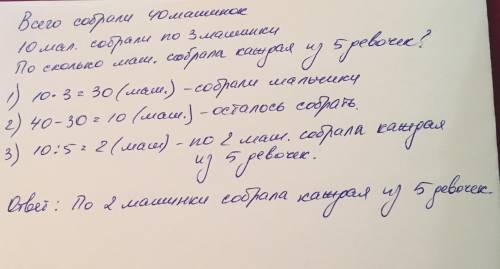 Всего собрали 40 машинок
10 мал. собрали по 3 машинки
По сколько маш. собрала каждая из 5 девочек?
1) 10·3=30 (маш.) – собрали мальчики
2) 40-30=10 (маш.) – осталось собрать.
3) 10:5=2 (маш) – по 2 маш. собрала каждая
из 5 девочек.
Ответ: По 2 машинки собрала каждая из 5 девочек.